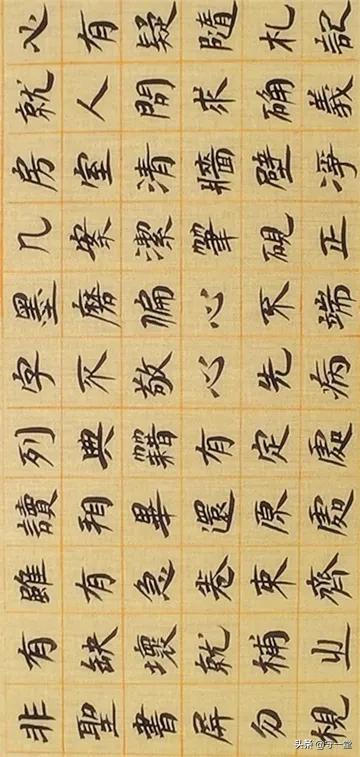 心有疑隨札記
就人問求确義
房室清牆壁淨
几案潔筆硯正
墨磨偏心不端
字不敬心先病
列典籍有定處
讀看畢還原處
雖有急卷束齊
有缺壞就補之
非聖書屏勿視
头条 @守一堂